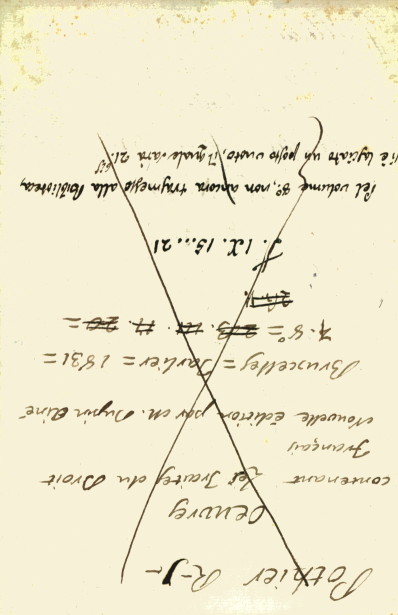 Pothier R-J-
Oeuvres
contenant les Traités du Droit
français
Nouvelle édition par M. Dupin Ainé
Bruxelles = Tarlier = 1831 =
7. 8° =
F. IX. 15...21
Pel volume 8°, non ancora trasmesso alla Biblioteca,
s'è lasciato un posto vuoto, il quale sarà 21 bis